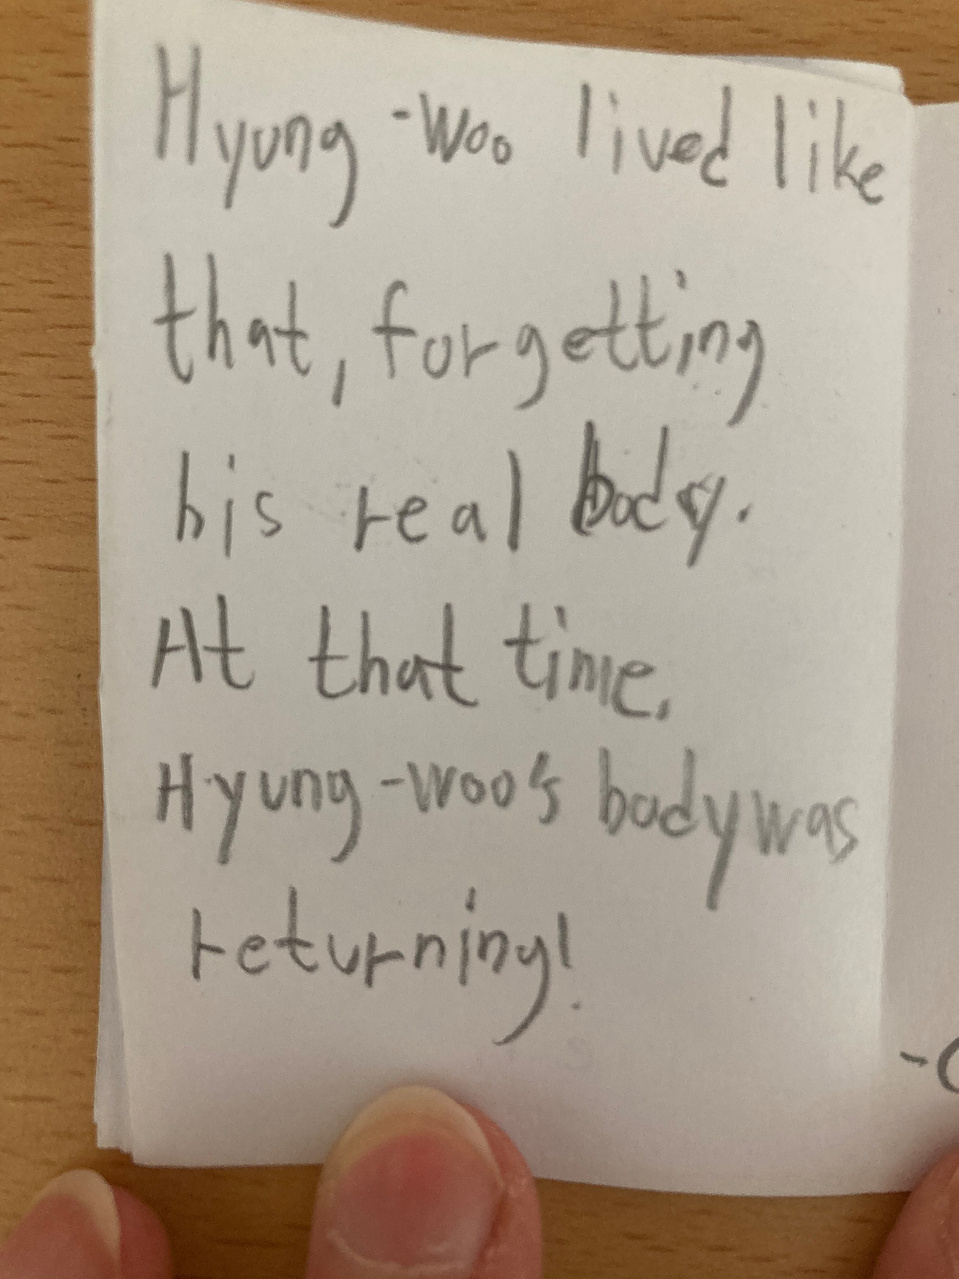 Hyung-Woo lived like
that, forgetting
his real body.
At that time,
Hyung-Woo's body was
returning!